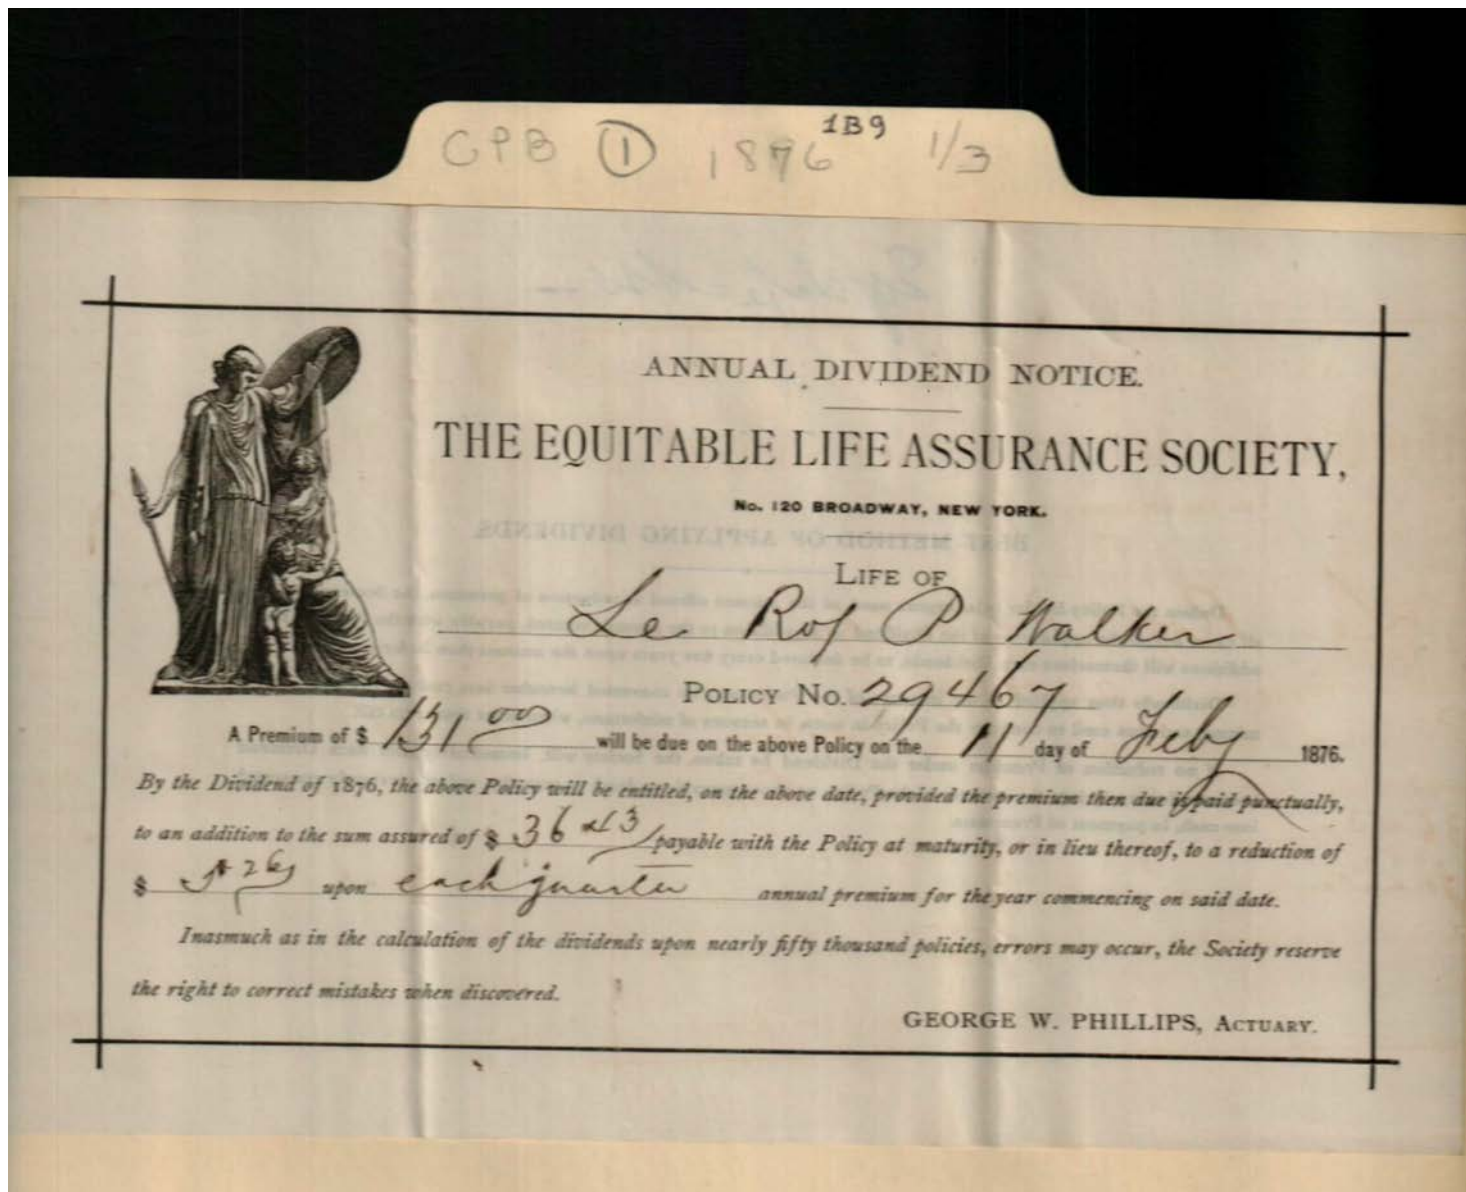 CPB 1 1876 1B9 1/3
ANNUAL DIVIDEND NOTICE.
THE EQUITABLE LIFE ASSURANCE SOCIETY,
No. 120 BROADWAY, NEW YORK.
BEST METHOD OF APPLYING DIVIDENDS.
LIFE OF
Le Roy P Walker
POLICY No. 29467
A Premium of $ 131 00 will be due on the above Policy on the 11 day of Feby 1876.
By the Dividend of 1876, the above Policy will be entitled, on the above date, provided the premium then due is paid punctually,
to an addition to the sum assured of $ 36 43 payable with the Policy at maturity, or in lieu thereof, to a reduction of
$ upon each quarter annual premium for the year commencing on said date.
Inasmuch as in the calculation of the dividends upon nearly fifty thousand policies, errors may occur, the Society reserve
the right to correct mistakes when discovered.
GEORGE W. PHILLIPS, ACTUARY.